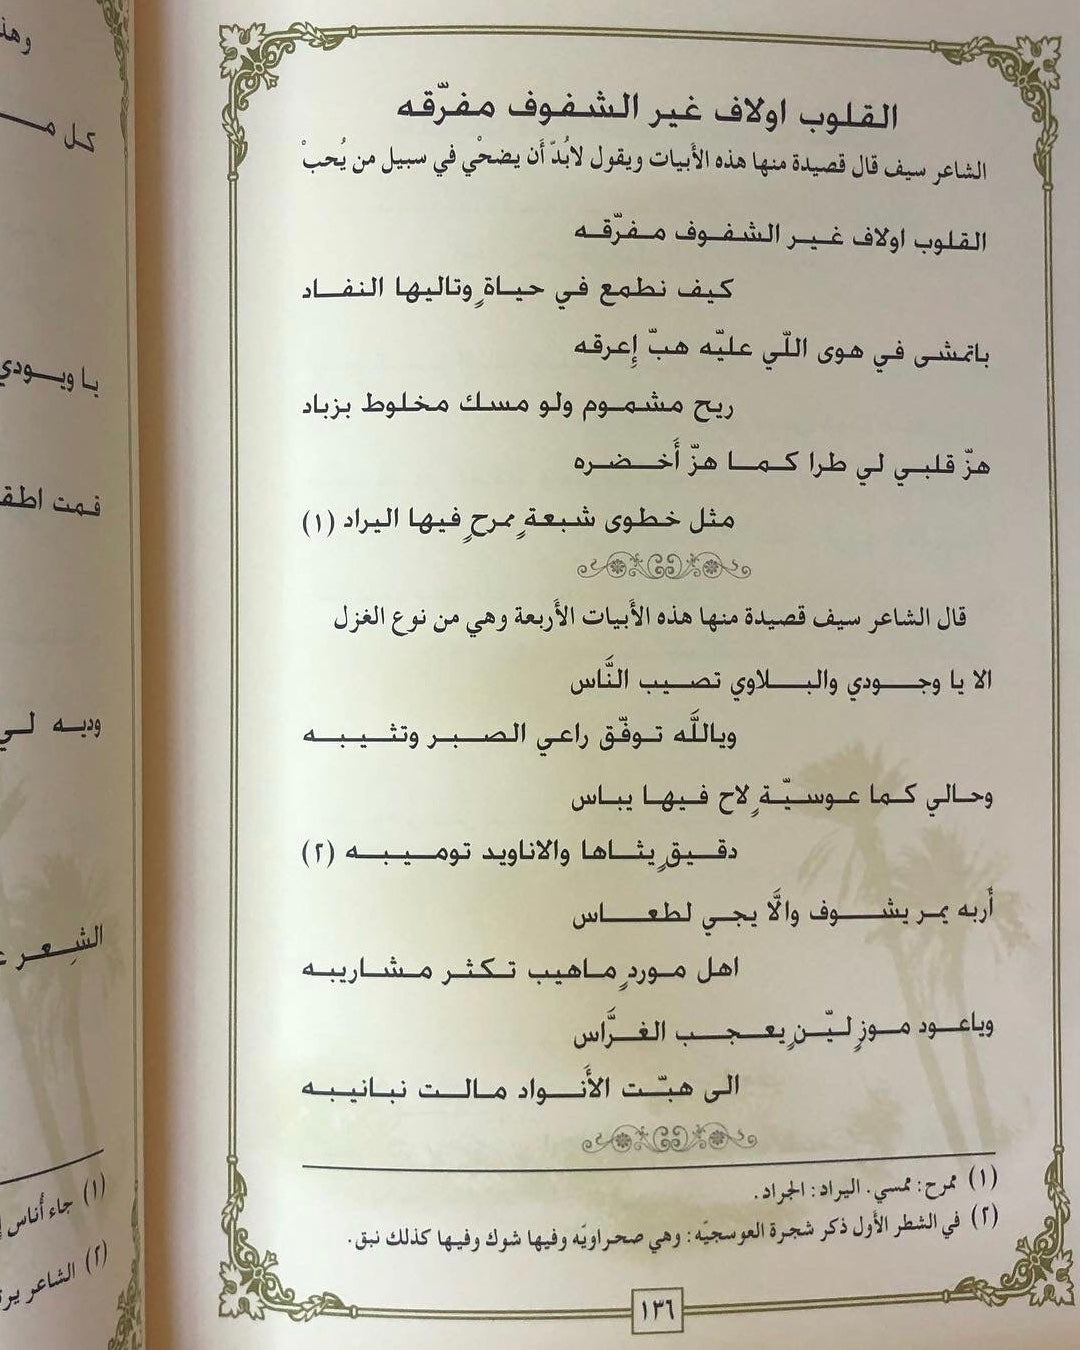 القلوب اولاف غير الشفوف مفرّقه
الشاعر سيف قال قصيدة منها هذه الأبيات ويقول لابُدّ أَن يضحْي في سبيل من يُحبْ
القلوب اولاف غير الشفوف مفرّقه
كيف نطمع في حياةٍ وتاليها النفاد
باتمشى في هوى اللّي عليّه هبّ إعرقه
ريح مشموم ولو مسك مخلوط بزباد
هزّ قلبي لي طرا كما هزّ أَخضره
مثل خطوى شبعةٍ ممرحٍ فيها اليراد (١)
قال الشاعر سيف قصيدة منها هذه الأَبيات الأَربعة وهي من نوع الغزل
الا يا وجودي والبلاوي تصيب النَّاس
وياللَّه توفّق راعي الصبر وتثيبه
وحالي كما عوسيّةٍ لاح فيها يباس
دقيقٍ يثاها والاناويد توميبه (٢)
أَربه يمر يشوف والَّا يجي لطعاس
اهل موردٍ ماهيب تكثر مشاريبه
وياعود موزٍ ليّنٍ يعجب الغرَّاس
الى هبّت الأَنواد مالت نبانيبه
(١) ممرح: ممسي. اليراد: الجراد.
(٢) في الشطر الأول ذكر شجرة العوسجيّه: وهي صحراويّه وفيها شوك وفيها كذلك نبق.
١٣٦
وهذ
كل
يا ويودي
قمت اطق
وديه لي
الشِعر
(١) جاء أُناس
(٢) الشاعر